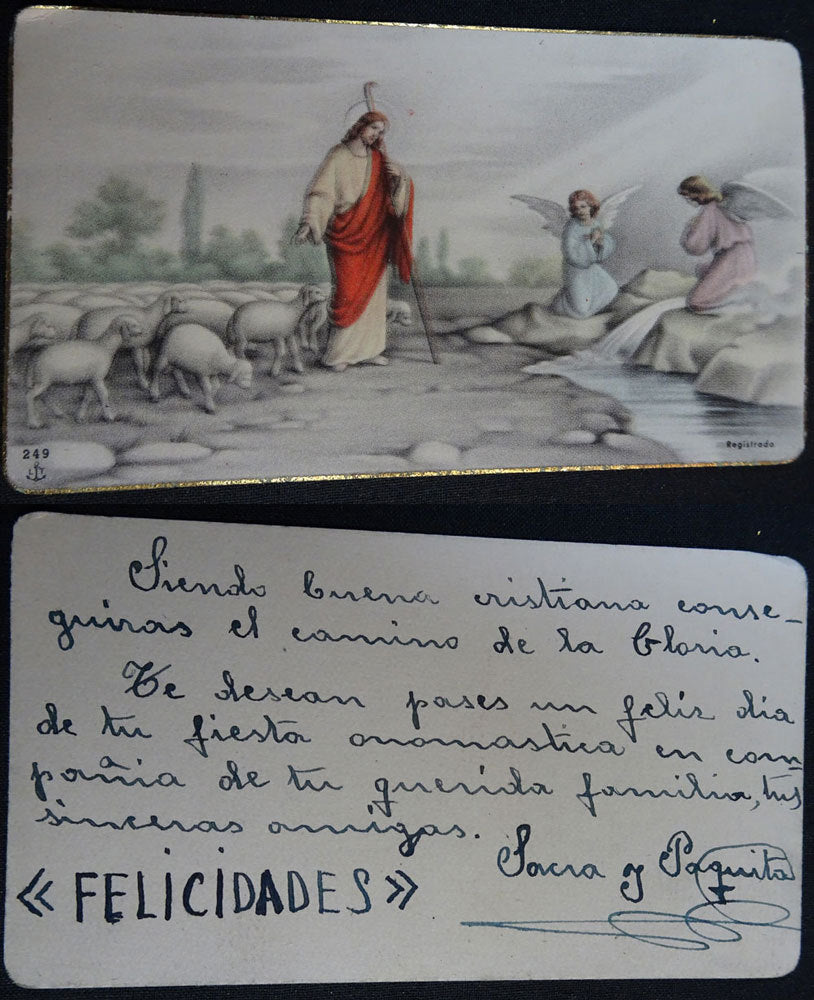 249
Registrado
Siendo buena cristiana conse-
guiras el camino de la Gloria.
Te desean pases un feliz dia
de tu fiesta onomastica en com-
pañia de tu querida familia, tus
sinceras amigas.
Sacra y Paquita
« FELICIDADES »